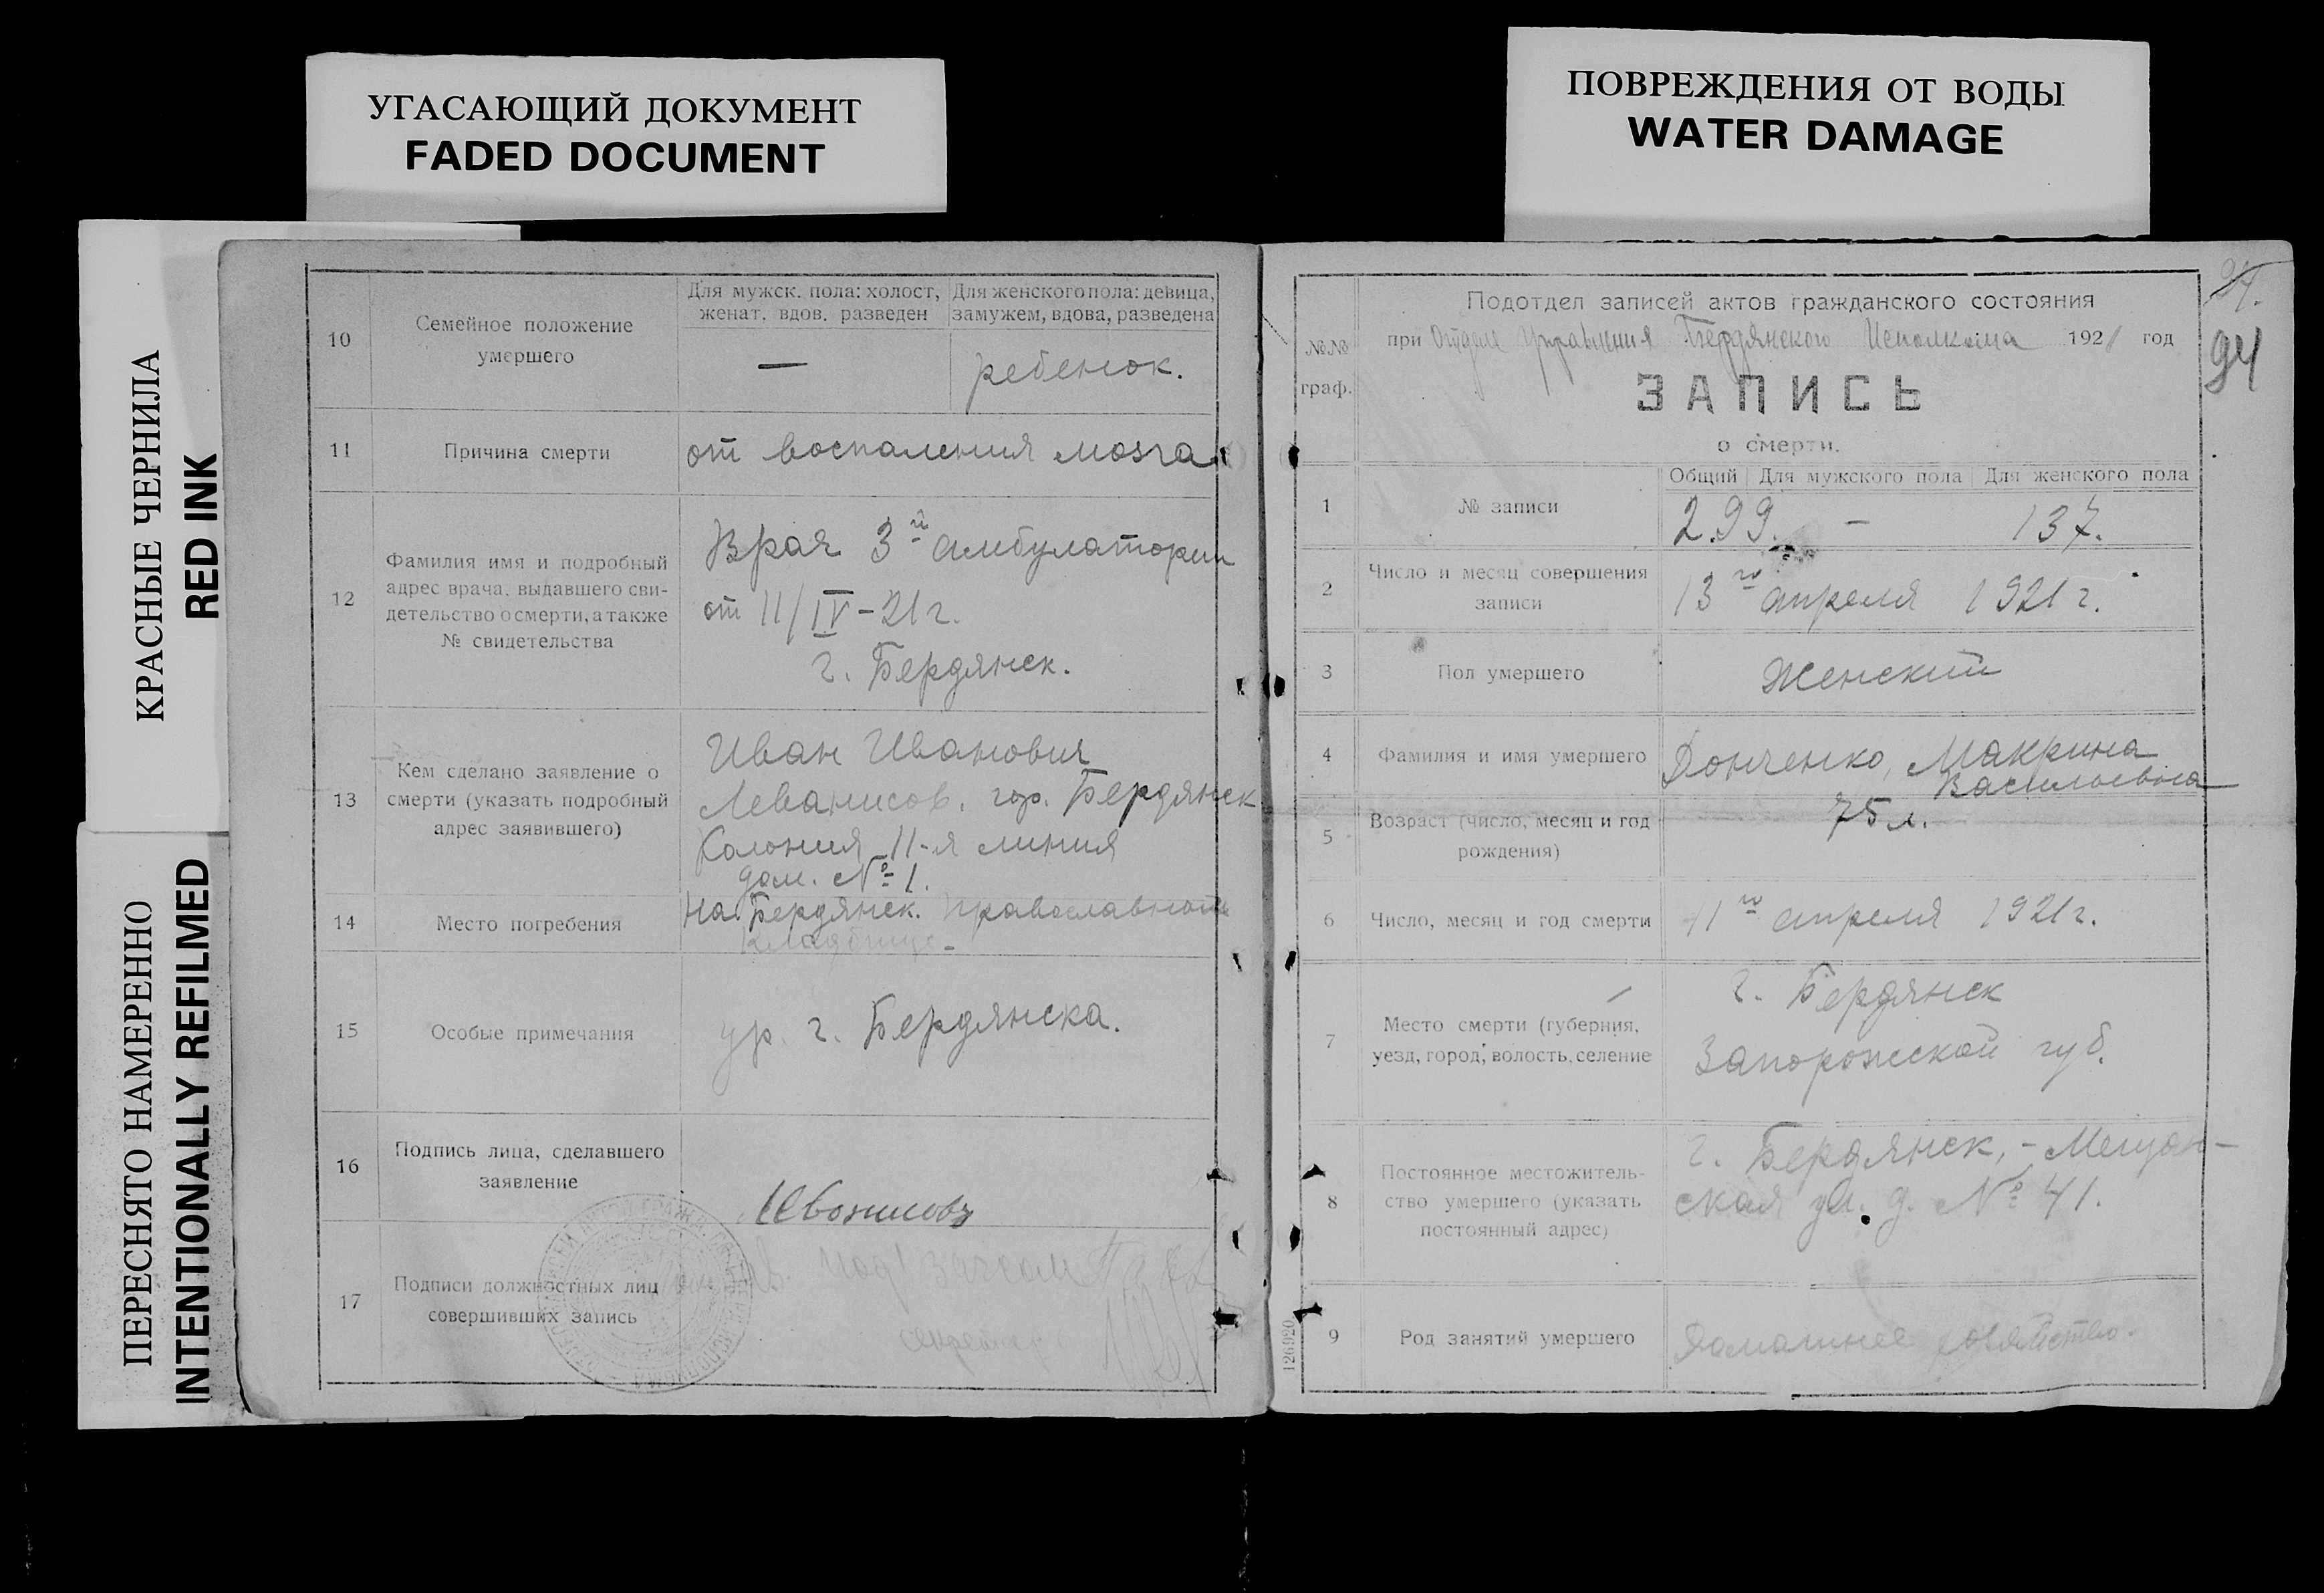 УГАСАЮЩИЙ ДОКУМЕНТ
FADED DOCUMENT
ПОВРЕЖДЕНИЯ ОТ ВОДЫ
WATER DAMAGE
КРАСНЫЕ ЧЕРНИЛА
RED INK
ПЕРЕСНЯТО НАМЕРЕННО
INTENTIONALLY REFILMED
10
Семейное положение
умершего
Для мужск. пола: холост,
женат. вдов. разведен
Для женского пола: девица,
замужем, вдова, разведена
—
ребенок.
11
Причина смерти
от воспаления мозга
12
Фамилия имя и подробный
адрес врача, выдавшего сви-
детельство о смерти, а также
№ свидетельства
Врач 3й амбулатории
от 11/IV-21 г.
г. Бердянск.
13
Кем сделано заявление о
смерти (указать подробный
адрес заявившего)
Иван Иванович
Леванисов, гор. Бердянск
Колония 11-я линия
дом. № 1.
14
Место погребения
На Бердянск. православном
кладбище-
15
Особые примечания
ур. г. Бердянска.
16
Подпись лица, сделавшего
заявление
17
Подписи должностных лиц
совершивших запись
Под
секретарь
94
№№
граф.
Подотдел записей актов гражданского состояния
при Отделе Управления Бердянского Исполкома 1921 год
ЗАПИСЬ
о смерти.
1
№ записи
Общий Для мужского пола Для женского пола
299. — 137.
2
Число и месяц совершения
записи
13го апреля 1921 г.
3
Пол умершего
Женский
4
Фамилия и имя умершего
Донченко, Макрина
Васильевна
5
Возраст (число, месяц и год
рождения)
75 л.
6
Число, месяц и год смерти
11го апреля 1921 г.
7
Место смерти (губерния,
уезд, город, волость, селение
г. Бердянск
Запорожской губ.
8
Постоянное местожитель-
ство умершего (указать
постоянный адрес)
г. Бердянск, - Мещан-
ская ул. д. № 41.
9
Род занятий умершего
Домашнее хозяйство.
126920